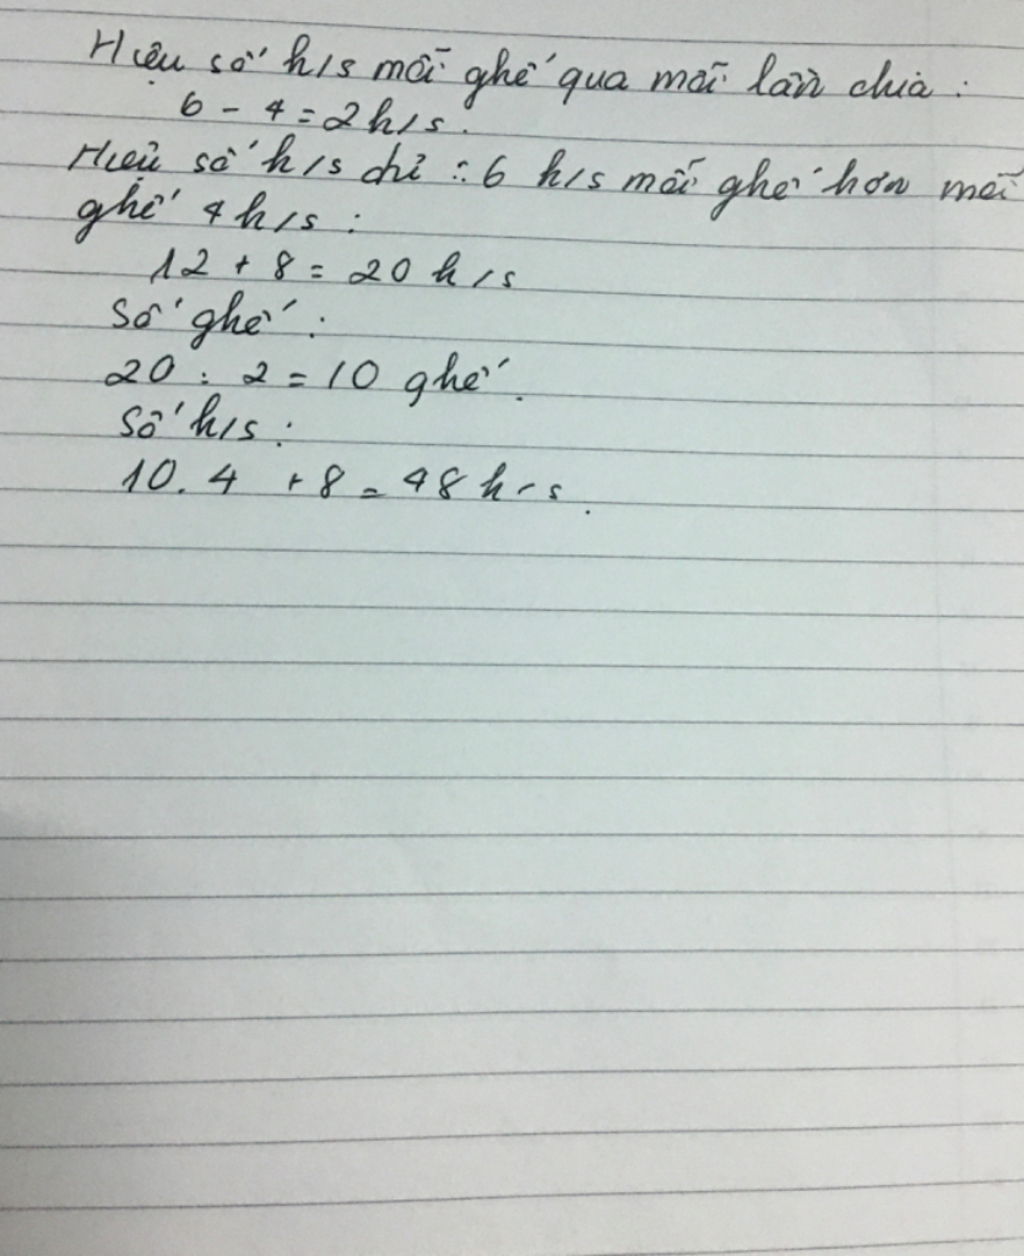 Hiệu số h/s mỗi ghế qua mỗi lần chia :
6 - 4 = 2 h/s.
Hiệu số h/s chỉ : 6 h/s mỗi ghế hơn mỗi
ghế 4 h/s :
12 + 8 = 20 h/s
Số ghế :
20 : 2 = 10 ghế.
Số h/s :
10. 4 + 8 = 48 h-s.